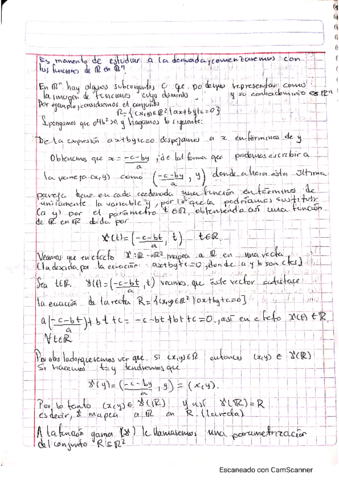 Es momento de estudiar a la derivada, y comenzaremos con
las funciones de ℝ en ℝⁿ
En ℝⁿ hay algunos subconjuntos C que podemos representar como
la imagen de funciones cuyo dominio y su contradominio es ℝⁿ
Por ejemplo, consideremos el conjunto
R={(x,y)∈ℝ²|ax+by+c=0}
Supongamos que a²+b²>0, y hagamos lo siguiente:
De la expresión ax+by+c=0 despejamos a x en términos de y
Obtenemos que x=-c-by/a, de tal forma que podemos escribir a
la pareja (x,y) como (-c-by/a, y) donde ahora esta última
pareja tiene en cada coordenada una función en términos de
únicamente la variable y, por lo que la podríamos sustituir
(a y) por el parámetro t∈ℝ, obteniendo así una función
de ℝ en ℝ² dada por
γ(t)=(-c-bt/a, t) t∈ℝ.
Veamos que en efecto γ:ℝ→ℝ² mapea a ℝ en una recta
(la descrita por la ecuación ax+by+c=0, donde a y b son ctes)
Sea t∈ℝ. γ(t)=(-c-bt/a, t) veamos que este vector satisface
la ecuación de la recta R={(x,y)∈ℝ²|ax+by+c=0}
a(-c-bt/a)+bt+c=-c-bt+bt+c=0, así en efecto γ(t)∈R
∀t∈ℝ
Por otro lado queremos ver que si (x,y)∈R entonces (x,y)∈γ(ℝ)
Si hacemos t=y tendremos que
γ(y)=(-c-by/a, y)=(x,y).
Por lo tanto (x,y)∈γ(ℝ) y así γ(ℝ)=R
es decir, γ mapea a ℝ en R. (la recta)
A la función gama (γ) le llamaremos una parametrización
del conjunto R⊆ℝ²
Escaneado con CamScanner